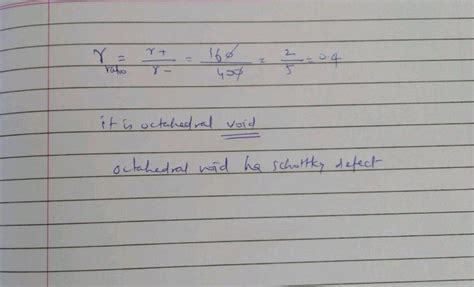 r ratio = r+ / r- = 160 / 400 = 2 / 5 = 0.4
it is octahedral void
octahedral void ha schottky defect